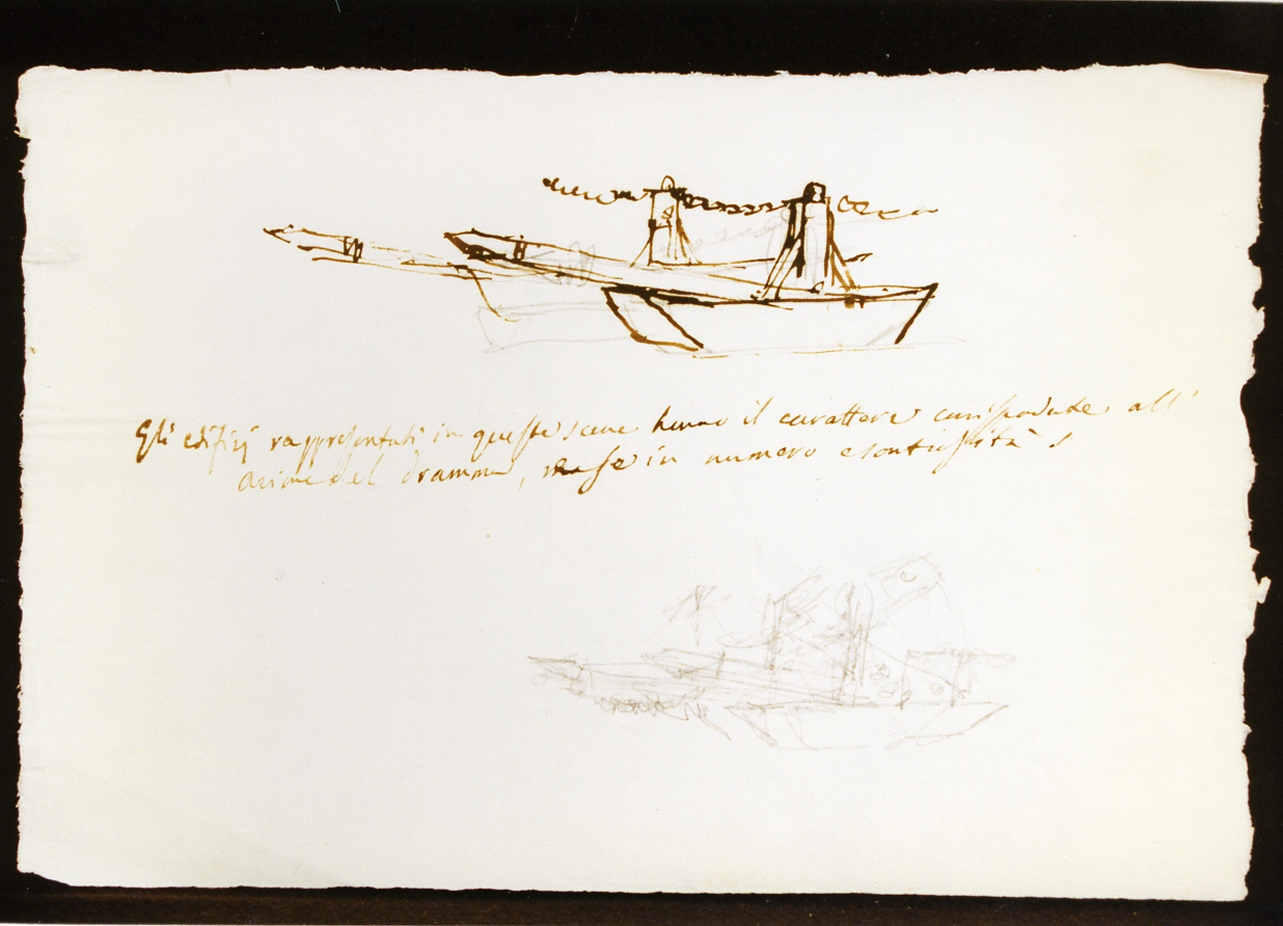 Gli edifizj rappresentati in queste scene hanno il carattere corrispondente all'
azione del dramma, in numero e contiguità s